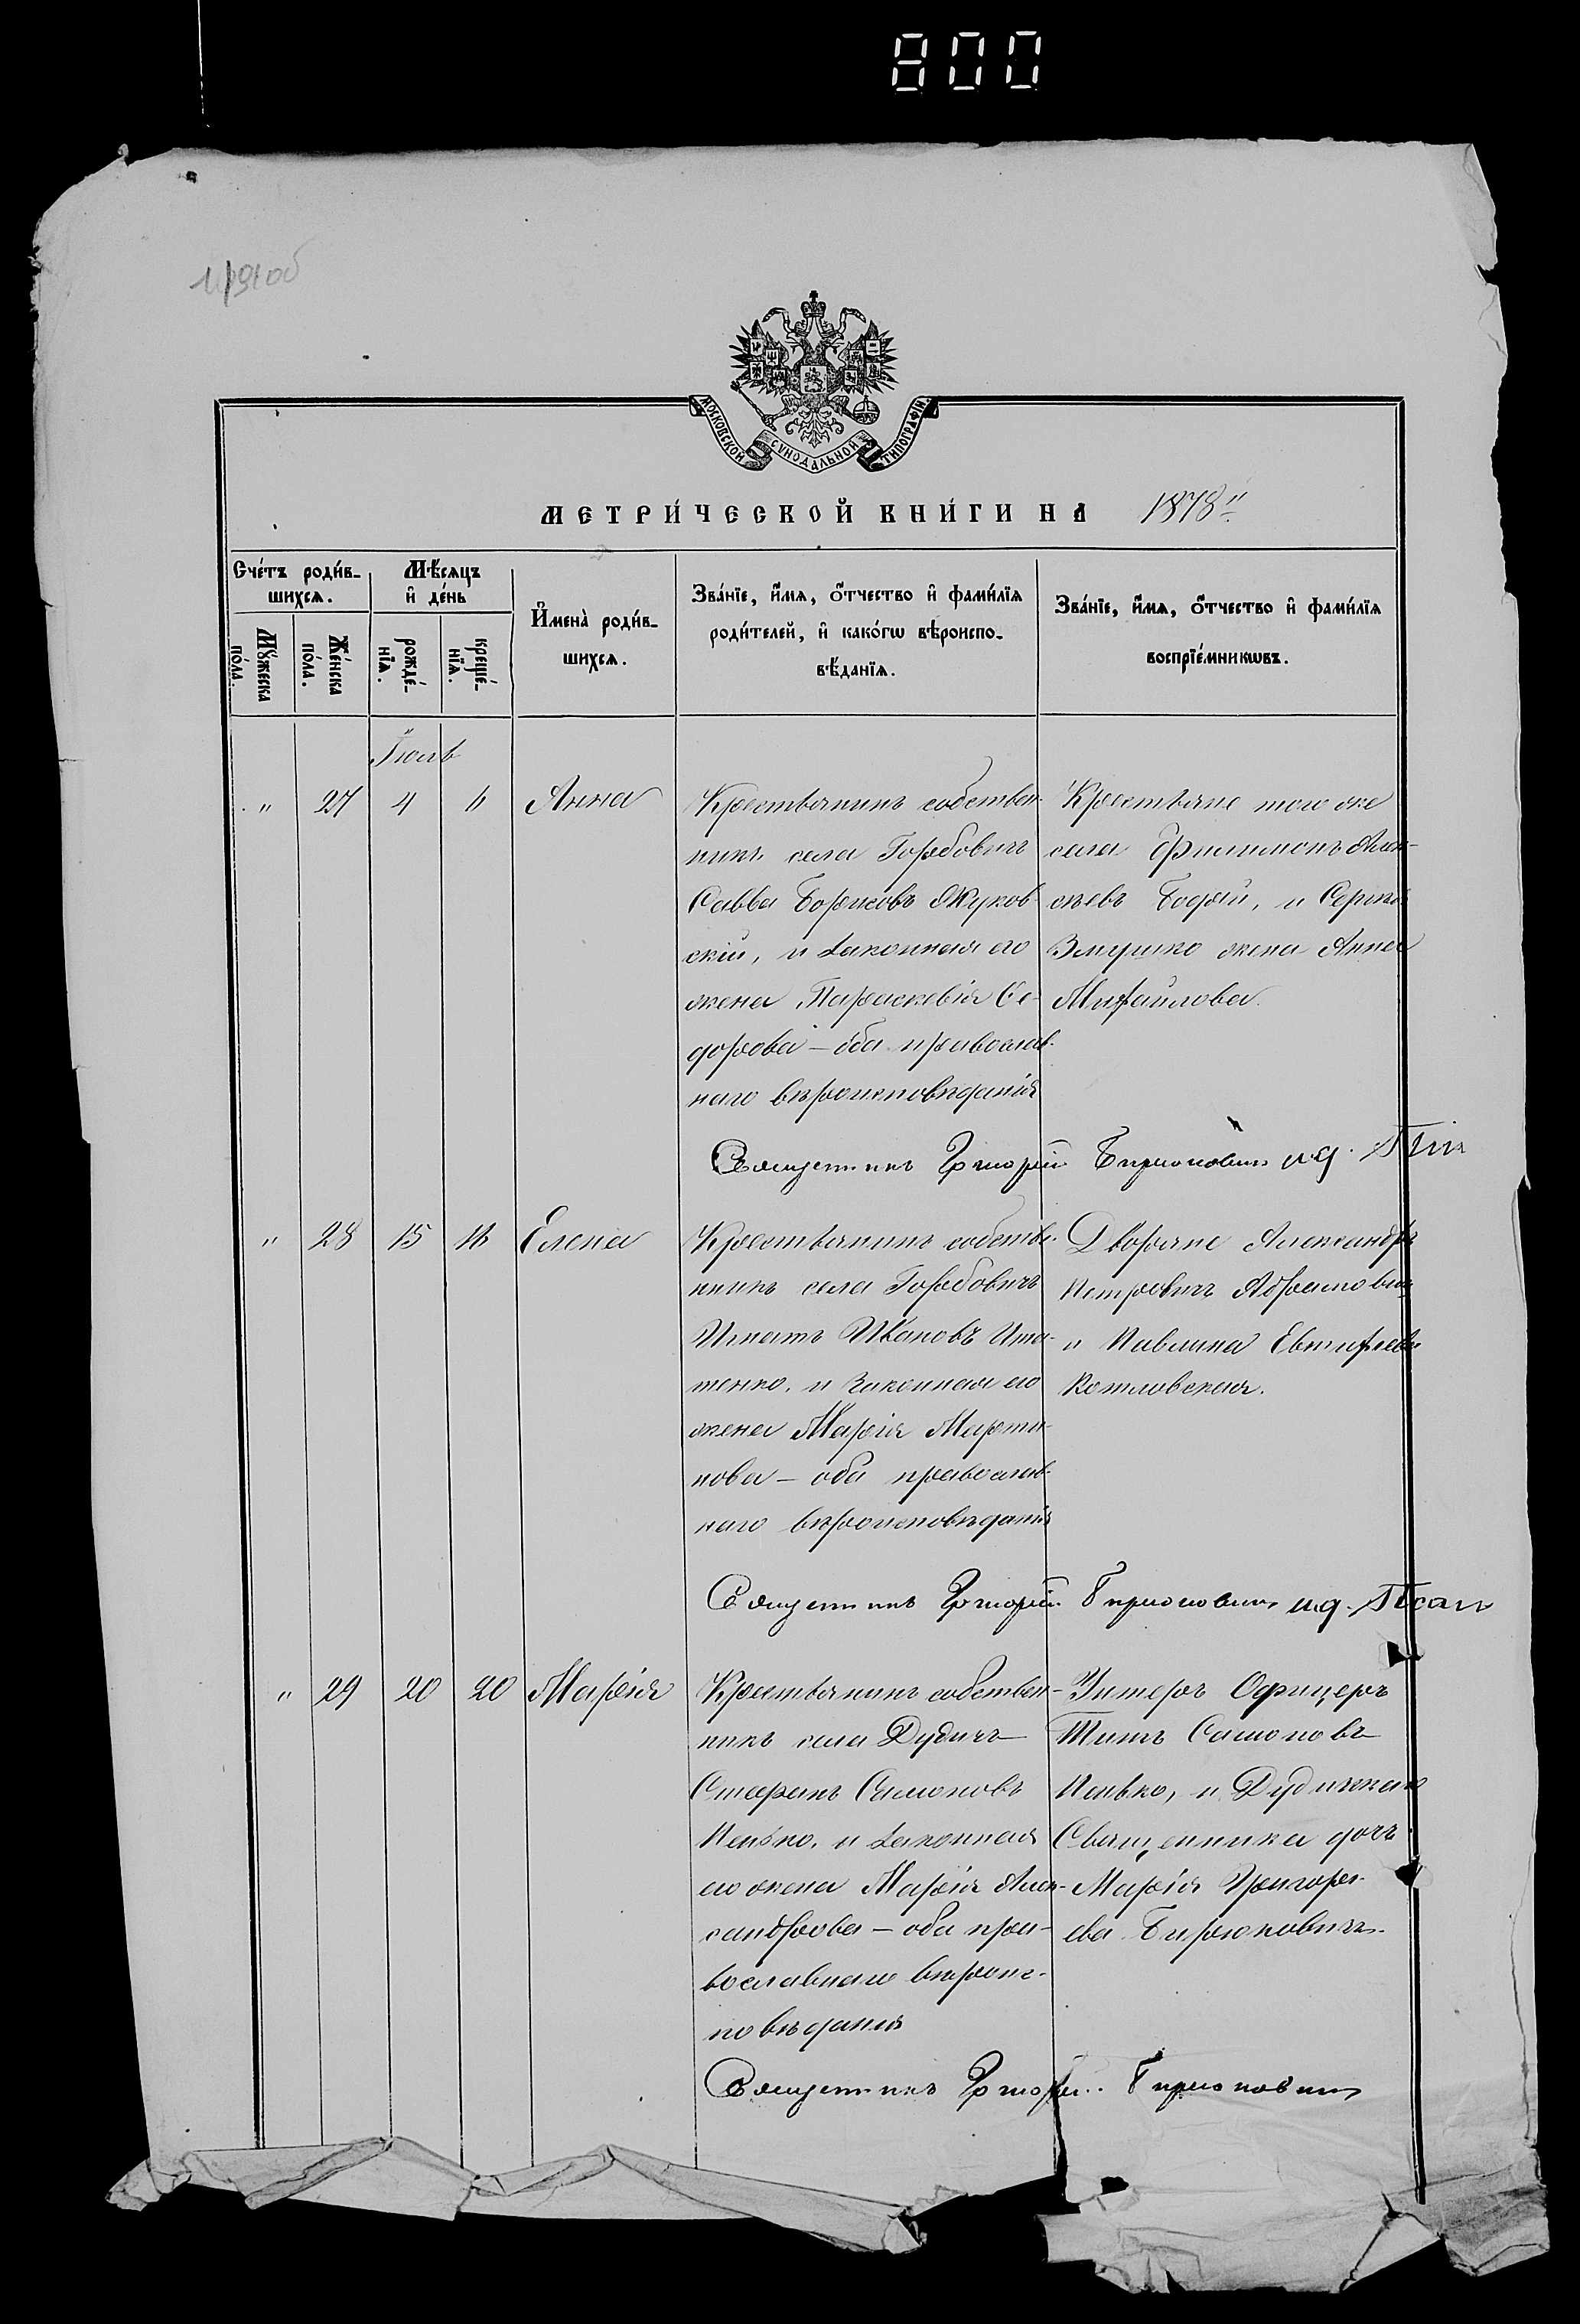 800
МОСКОВСКОЙ СѴНОДАЛЬНОЙ ТИПОГРАФІИ.
МЕТРИ́ЧЕСКОЙ КНИ́ГИ НА 1878
Сче́тъ роди́в-
шихсѧ.
Мꙋ́жеска по́ла.
Же́нска по́ла.
Мѣ́сѧцъ и҆ де́нь
рожде́-нїѧ.
креще́-нїѧ.
И҆мена̀ роди́в-
шихсѧ.
Зва́нїе, и҆́мѧ, ѻ҆́тчество и҆ фами́лїѧ
роди́телей, и҆ како́гѡ вѣроиспо-
вѣ́данїѧ.
Зва́нїе, и҆́мѧ, ѻ҆́тчество и҆ фами́лїѧ
воспрїе́мникѡвъ.
Іюль
" 27 4 6 Анна
Крестьянинъ собствен-
никъ села Горбовичъ
Савва Борисовъ Жуков-
скій, и законная его
жена Параскевія Ѳе-
дорова — оба православ-
наго вѣроисповѣданія
Крестьяне того же
села Филимонъ Алек-
сѣевъ Бодяй, и Сергія
жена Анна
Михайлова.
Священникъ Григорій Бирюковичъ и.д.
" 28 15 16 Елена
Крестьянинъ собстве-
никъ села Горбовичъ
Игнатъ Ивановъ Игна-
тенко, и законная его
жена Марія Марти-
нова — оба православ-
наго вѣроисповѣданія
Дворяне Александръ
Петровичъ Абрамовичъ
и Павлина Евтихіева
Котловская.
Священникъ Григорій Бирюковичъ и.д. Псал
" 29 20 20 Марія
Крестьянинъ собствен-
никъ села Дудичъ
Стефанъ Самоновъ
Пенько, и законная
его жена Марія Алек-
сандрова — оба пра-
вославнаго вѣроис-
повѣданія
Унтеръ Офицеръ
Титъ Самоновъ
Пенько, и Дудичская
Священника дочь
Марія Григорі-
ева Бирюковичъ.
Священникъ Григорій Бирюковичъ